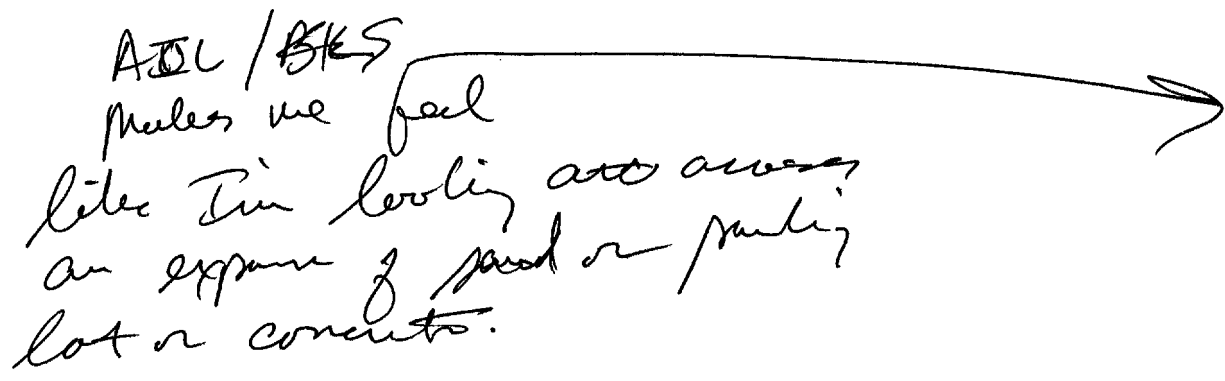 makes me feel
like I'm looking across
an expanse of sand or parking
lot or concrete.